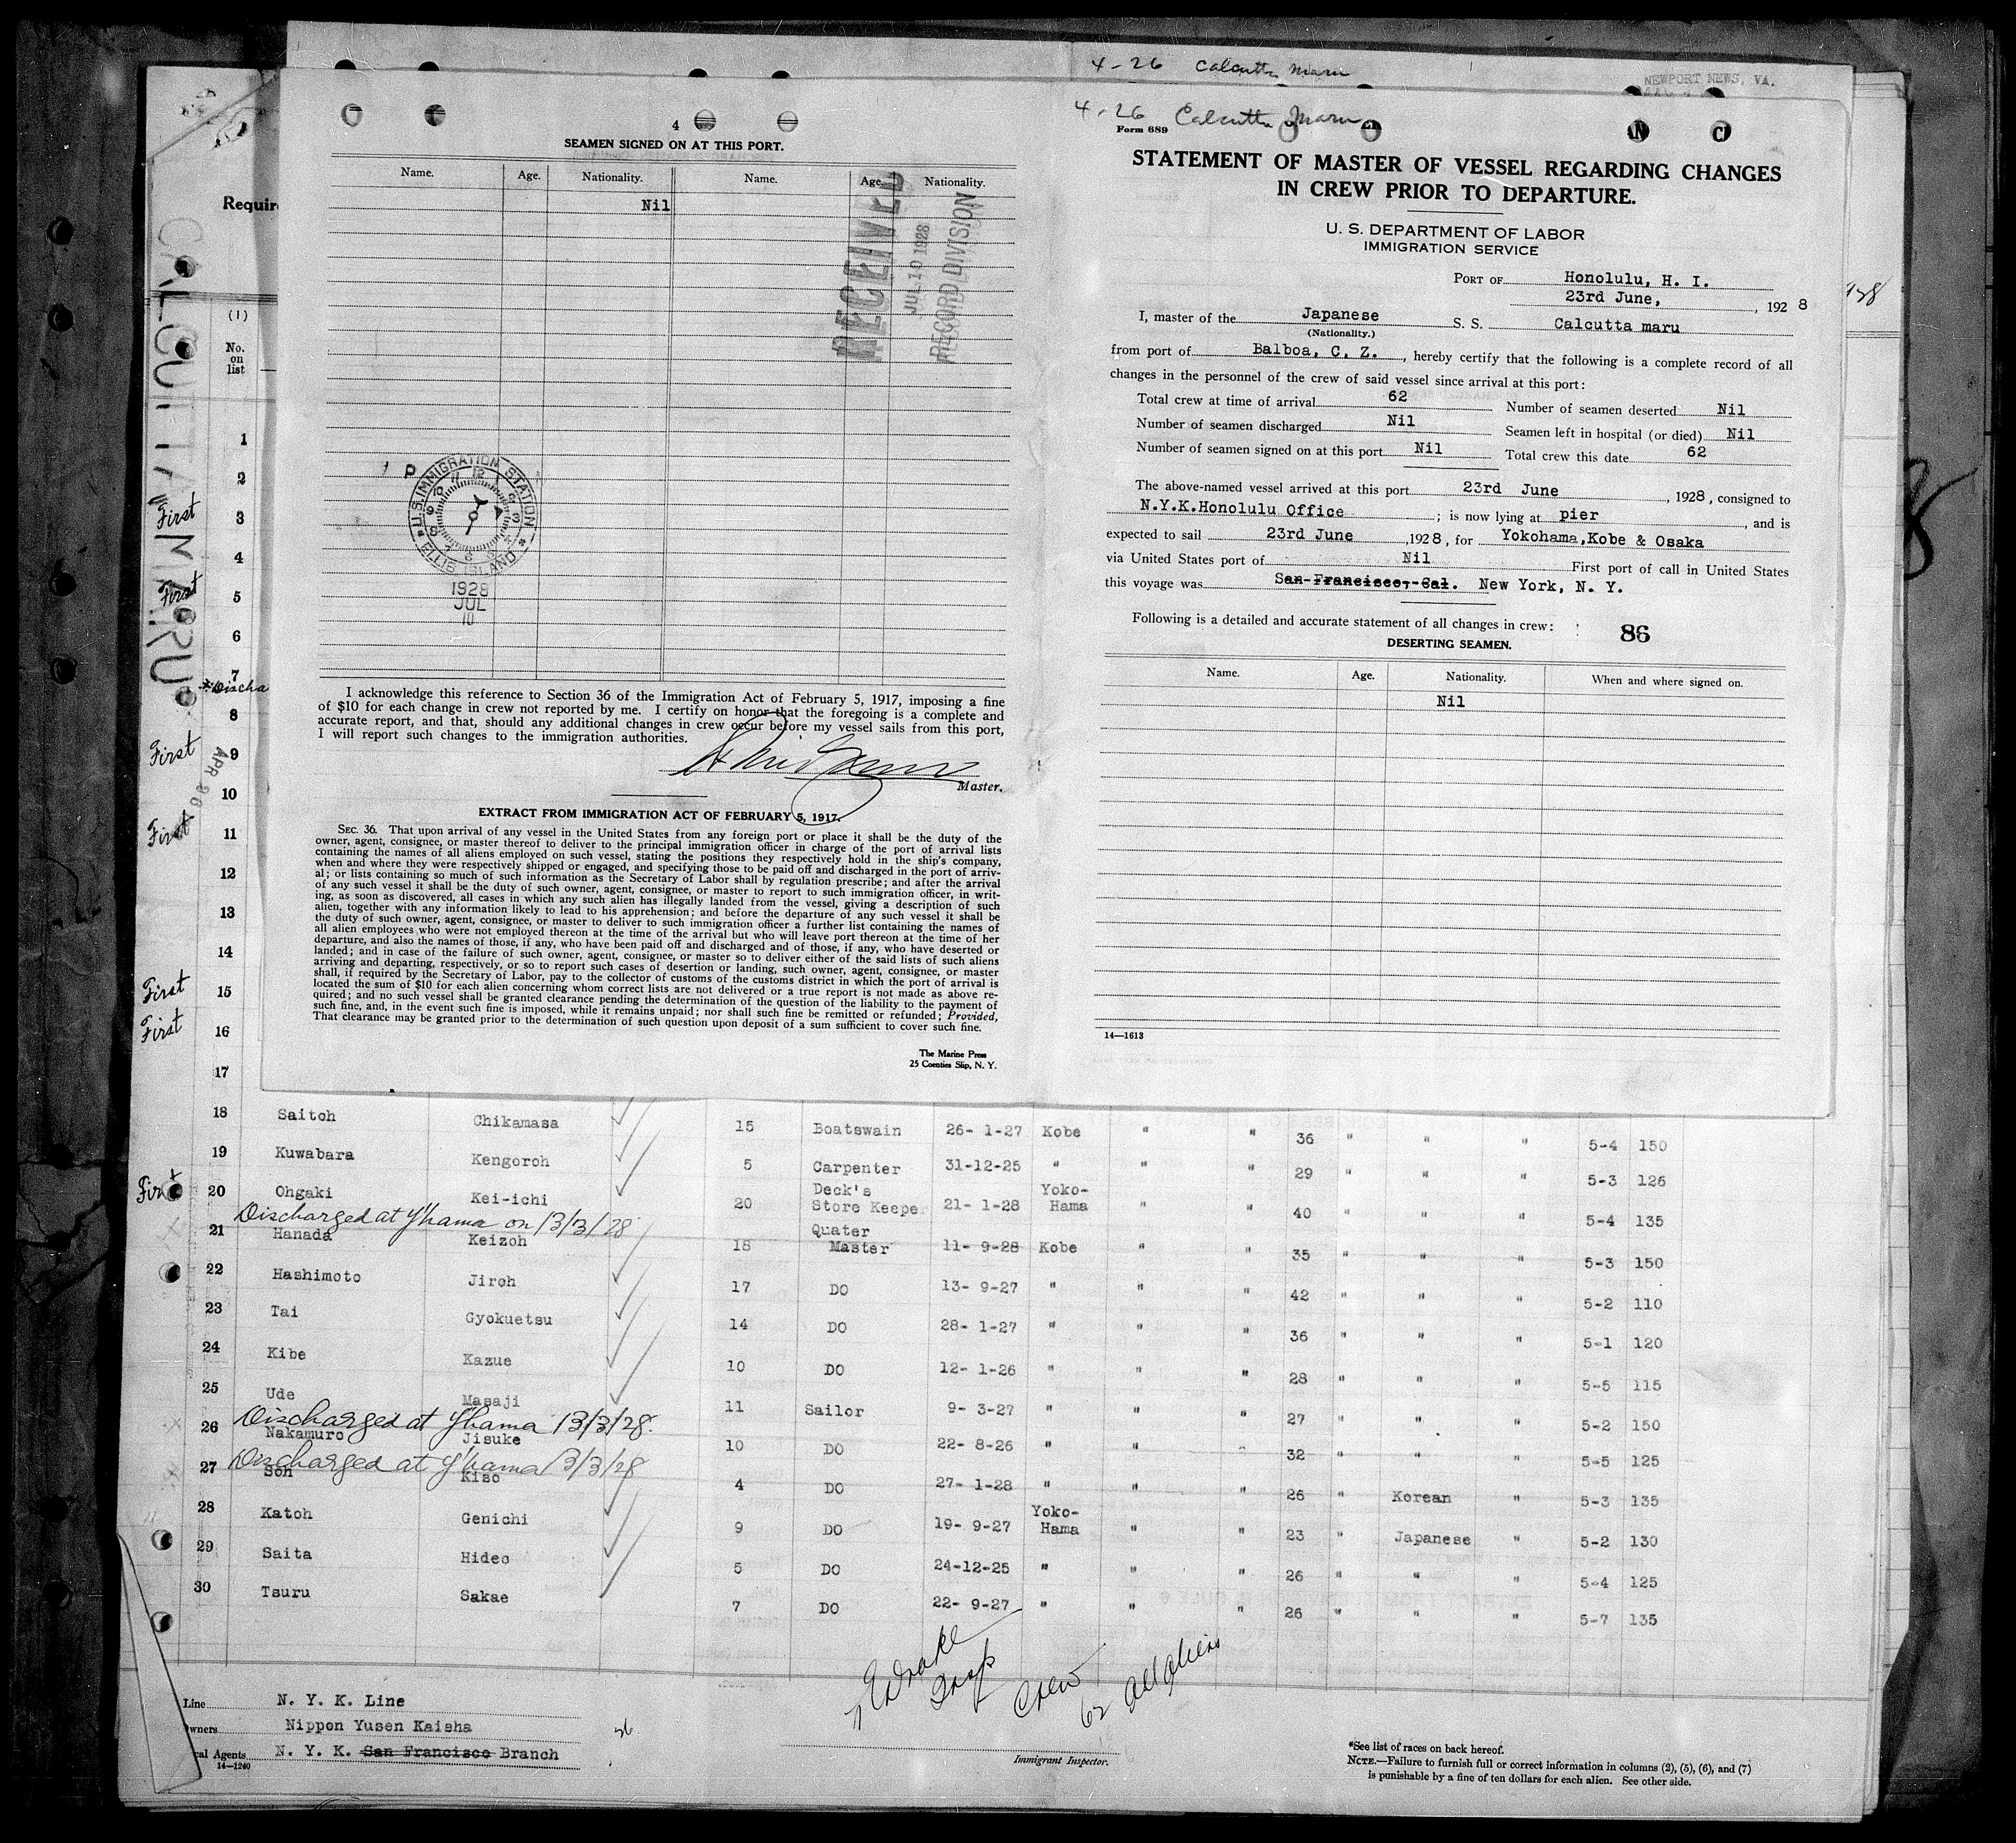 4-26 Calcutta Maru
NEWPORT NEWS, VA.
4
SEAMEN SIGNED ON AT THIS PORT.
Name. Age. Nationality. Name. Age. Nationality.
Nil
RECEIVED
JUL 10 1928
RECORD DIVISION
U.S. IMMIGRATION STATION
ELLIS ISLAND
1928
JUL
10
I acknowledge this reference to Section 36 of the Immigration Act of February 5, 1917, imposing a fine
of $10 for each change in crew not reported by me. I certify on honor that the foregoing is a complete and
accurate report, and that, should any additional changes in crew occur before my vessel sails from this port,
I will report such changes to the immigration authorities.
Master.
EXTRACT FROM IMMIGRATION ACT OF FEBRUARY 5, 1917.
SEC. 36. That upon arrival of any vessel in the United States from any foreign port or place it shall be the duty of the
owner, agent, consignee, or master thereof to deliver to the principal immigration officer in charge of the port of arrival lists
containing the names of all aliens employed on such vessel, stating the positions they respectively hold in the ship's company,
when and where they were respectively shipped or engaged, and specifying those to be paid off and discharged in the port of arriv-
al; or lists containing so much of such information as the Secretary of Labor shall by regulation prescribe; and after the arrival
of any such vessel it shall be the duty of such owner, agent, consignee, or master to report to such immigration officer, in writ-
ing, as soon as discovered, all cases in which any such alien has illegally landed from the vessel, giving a description of such
alien, together with any information likely to lead to his apprehension; and before the departure of any such vessel it shall be
the duty of such owner, agent, consignee, or master to deliver to such immigration officer a further list containing the names of
all alien employees who were not employed thereon at the time of the arrival but who will leave port thereon at the time of her
departure, and also the names of those, if any, who have been paid off and discharged and of those, if any, who have deserted or
landed; and in case of the failure of such owner, agent, consignee, or master so to deliver either of the said lists of such aliens
arriving and departing, respectively, or so to report such cases of desertion or landing, such owner, agent, consignee, or master
shall, if required by the Secretary of Labor, pay to the collector of customs of the customs district in which the port of arrival is
located the sum of $10 for each alien concerning whom correct lists are not delivered or a true report is not made as above re-
quired; and no such vessel shall be granted clearance pending the determination of the question of the liability to the payment of
such fine, and, in the event such fine is imposed, while it remains unpaid; nor shall such fine be remitted or refunded; Provided,
That clearance may be granted prior to the determination of such question upon deposit of a sum sufficient to cover such fine.
The Marine Press
25 Coenties Slip, N. Y.
4-26 Calcutta Maru
Form 689
STATEMENT OF MASTER OF VESSEL REGARDING CHANGES
IN CREW PRIOR TO DEPARTURE.
U. S. DEPARTMENT OF LABOR
IMMIGRATION SERVICE
PORT OF Honolulu, H. I.
23rd June, , 192 8
I, master of the Japanese S. S. Calcutta maru
(Nationality.)
from port of Balboa, C. Z. , hereby certify that the following is a complete record of all
changes in the personnel of the crew of said vessel since arrival at this port:
Total crew at time of arrival 62 Number of seamen deserted Nil
Number of seamen discharged Nil Seamen left in hospital (or died) Nil
Number of seamen signed on at this port Nil Total crew this date 62
The above-named vessel arrived at this port 23rd June , 1928, consigned to
N.Y.K.Honolulu Office ; is now lying at pier , and is
expected to sail 23rd June ,1928, for Yokohama,Kobe & Osaka
via United States port of Nil First port of call in United States
this voyage was San-Francisco,-Cal. New York, N. Y.
Following is a detailed and accurate statement of all changes in crew: 86
DESERTING SEAMEN.
Name. Age. Nationality. When and where signed on.
Nil
14—1613
CALCUTTA MARU
Requir
(1)
No.
on
list
1
2
First 3
4
First 5
6
7
*Discha
8
First 9
APR 26
10
First 11
12
13
14
First 15
First 16
17
18 Saitoh Chikamasa 15 Boatswain 26- 1-27 Kobe " " 36 " " " 5-4 150
19 Kuwabara Kengoroh 5 Carpenter 31-12-25 " " " 29 " " " 5-3 126
First 20 Ohgaki Kei-ichi 20 Deck's Store Keeper 21- 1-28 Yoko-Hama " " 40 " " " 5-4 135
Discharged at Y'hama on 13/3/28
21 Hanada Keizoh 18 Quater Master 11- 9-28 Kobe " " 35 " " " 5-3 150
22 Hashimoto Jiroh 17 DO 13- 9-27 " " " 42 " " " 5-2 110
23 Tai Gyokuetsu 14 DO 28- 1-27 " " " 36 " " " 5-1 120
24 Kibe Kazue 10 DO 12- 1-26 " " " 28 " " " 5-5 115
25 Ude Masaji 11 Sailor 9- 3-27 " " " 27 " " " 5-2 150
Discharged at Y'hama 13/3/28.
26 Nakamuro Jisuke 10 DO 22- 8-26 " " " 32 " " " 5-5 125
Discharged at Y'hama 13/3/28
27 Soh Kiso 4 DO 27- 1-28 " " " 26 " Korean " 5-3 135
28 Katoh Genichi 9 DO 19- 9-27 Yoko-Hama " " 23 " Japanese " 5-2 130
29 Saita Hideo 5 DO 24-12-25 " " " 26 " " " 5-4 125
30 Tsuru Sakae 7 DO 22- 9-27 " " " 26 " " " 5-7 135
Crew
62 all aliens
Line N. Y. K. Line
Owners Nippon Yusen Kaisha
cal Agents N. Y. K. San Francisco Branch
14—1240
Immigrant Inspector.
*See list of races on back hereof.
NOTE.—Failure to furnish full or correct information in columns (2), (5), (6), and (7)
is punishable by a fine of ten dollars for each alien. See other side.